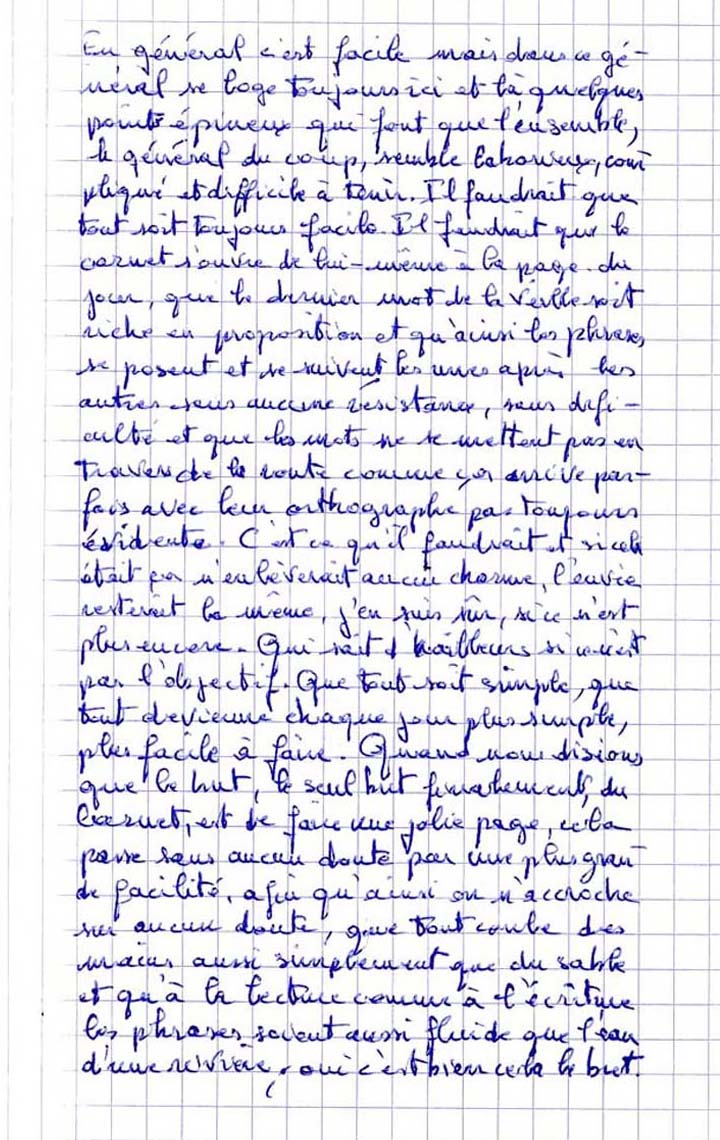 En général c'est facile mais dans ce gé-
néral se loge toujours ici et là quelques
points épineux qui font que l'ensemble,
le général du coup, semble laborieux, com
pliqué et difficile à tenir. Il faudrait que
tout soit toujours facile. Il faudrait que le
carnet s'ouvre de lui-même à la page du
jour, que le dernier mot de la veille soit
riche en proposition et qu'ainsi les phrases
se posent et se suivent les unes après les
autres sans aucune résistance, sans difi-
culté et que les mots ne se mettent pas en
travers de la route comme ça arrive par-
fois avec leur orthographe pas toujours
évidente. C'est ce qu'il faudrait et si cela
était ça n'enlèverait aucun charme, l'envie
resterait la même, j'en suis sûr, si ce n'est
plus encore. Qui sait d'hailleurs si ce n'est
pas l'objectif. Que tout soit simple, que
tout devienne chaque jour plus simple,
plus facile à faire. Quand nous disions
que le but, le seul but finalement, du
Carnet, est de faire une jolie page, cela
passe sans aucun doute par une plus gran
de facilité, afin qu'ainsi on n'accroche
sur aucun doute, que tout coule des
mains aussi simplement que du sable
et qu'à la lecture comme à l'écriture
les phrases soient aussi fluide que l'eau
d'une rivière, oui c'est bien cela le but.